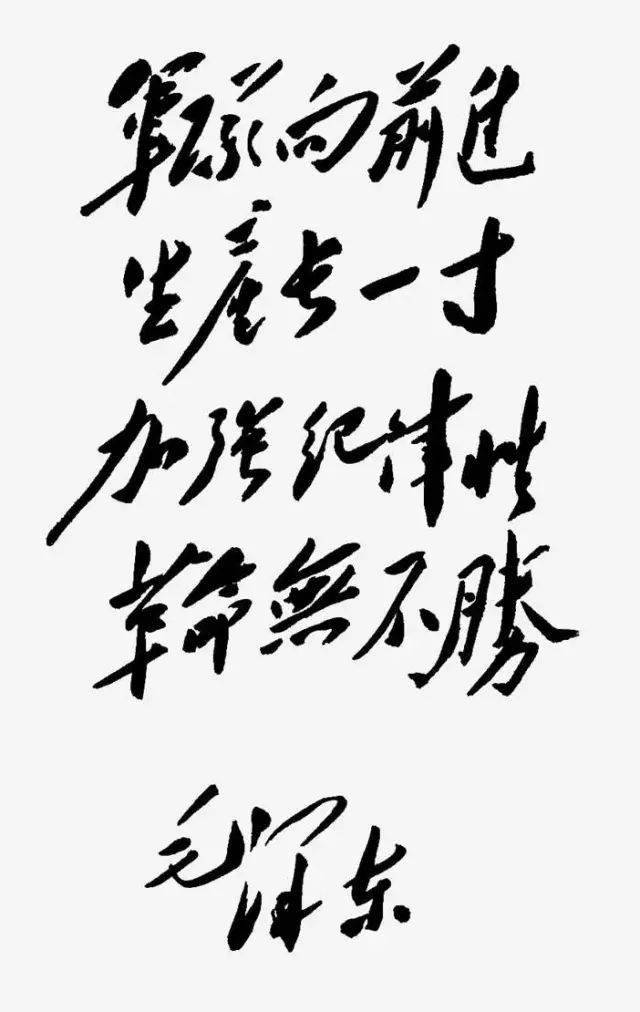 軍隊向前進
生產长一寸
加強纪律性
革命無不勝
毛泽东